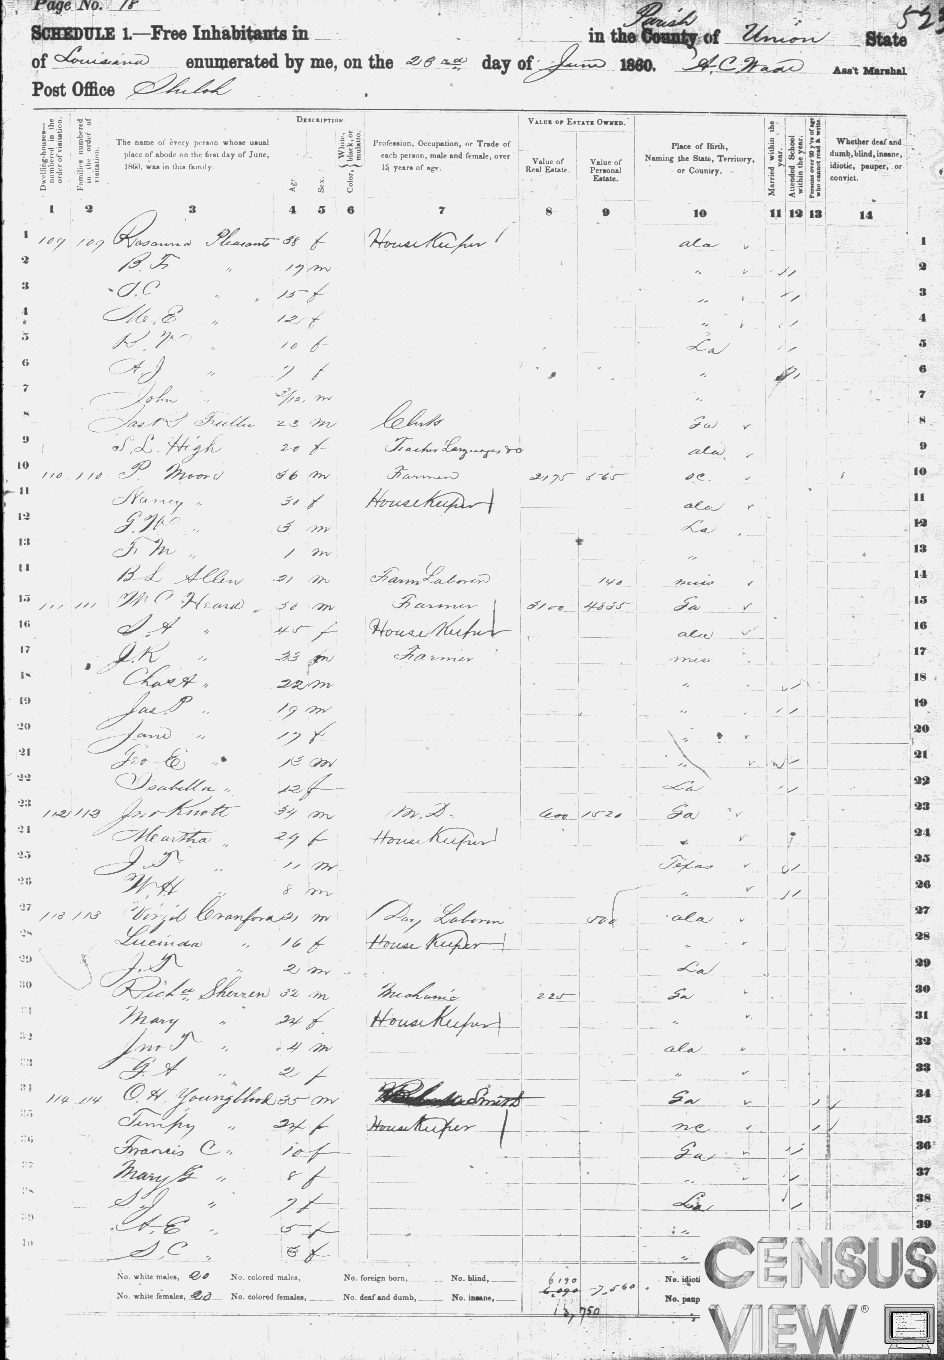 Page No. 18
SCHEDULE 1.—Free Inhabitants in in the County of Parish Union State
of Louisiana enumerated by me, on the 23rd day of June 1860. A. C. Wade Ass't Marshal
Post Office Shiloh
Dwelling-houses—numbered in the order of visitation.
Families numbered in the order of visitation.
The name of every person whose usual place of abode on the first day of June, 1860, was in this family.
Description.
Age. Sex. Color, White, black, or mulatto.
Profession, Occupation, or Trade of each person, male and female, over 15 years of age.
Value of Estate Owned.
Value of Real Estate. Value of Personal Estate.
Place of Birth, Naming the State, Territory, or Country.
Married within the year.
Attended School within the year.
Persons over 20 y'rs of age who cannot read & write.
Whether deaf and dumb, blind, insane, idiotic, pauper, or convict.
1 2 3 4 5 6 7 8 9 10 11 12 13 14
1 109 109 Rosanna Pleasants 38 f House Keeper ala 1
2 B. F. " 19 m " 2
3 " 15 f " 3
4 12 f " 4
5 10 f La 5
6 A J " 7 f " 6
7 John " 3/12 m " 7
8 23 m Clerk Ga 8
9 S. L. High 20 f Teacher Languages &c ala 9
10 110 110 P. Moore 36 m Farmer 2175 565 SC. 10
11 Nancy " 31 f House Keeper ala 11
12 G. W " 3 m La 12
13 F. M " 1 m " 13
14 B L Allen 21 m Farm Laborer 140 miss 14
15 111 111 W C Heard 50 m Farmer 3100 4835 Ga 15
16 S. A " 45 f House Keeper ala 16
17 J. K " 23 m Farmer miss 17
18 Chas A " 22 m " 18
19 Jas. P " 19 m " 19
20 Jane " 17 f " 20
21 Geo E " 13 m " 21
22 Isabella " 12 f La 22
23 112 112 Jno Knott 34 m M. D. 600 1520 Ga 23
24 Meartha " 29 f House Keeper " 24
25 J. T. " 11 m Texas 25
26 W. H " 8 m " 26
27 113 113 Virgil Cranford 21 m Day Laborer 500 ala 27
28 Lucinda " 16 f House Keeper " 28
29 J. T " 2 m La 29
30 Richd Sherren 32 m Mechanic 225 Ga 30
31 Mary " 24 f House Keeper " 31
32 Jno T " 4 m ala 32
33 G. A " 2 f " 33
34 114 114 O. H Youngblood 35 m Smith Ga 34
35 Timpy " 24 f House Keeper NC. 35
36 Francis C " 10 f Ga 36
37 Mary G " 8 f " 37
38 S. J " 7 f La 38
39 A. E " 5 f " 39
40 S. C " 3 f "
No. white males, 20 No. colored males, No. foreign born, No. blind, 6190 No. idioti
No. white females, 20 No. colored females, No. deaf and dumb, No. insane, 6,090 7,560 No. paup
13,750
CENSUS
VIEW®